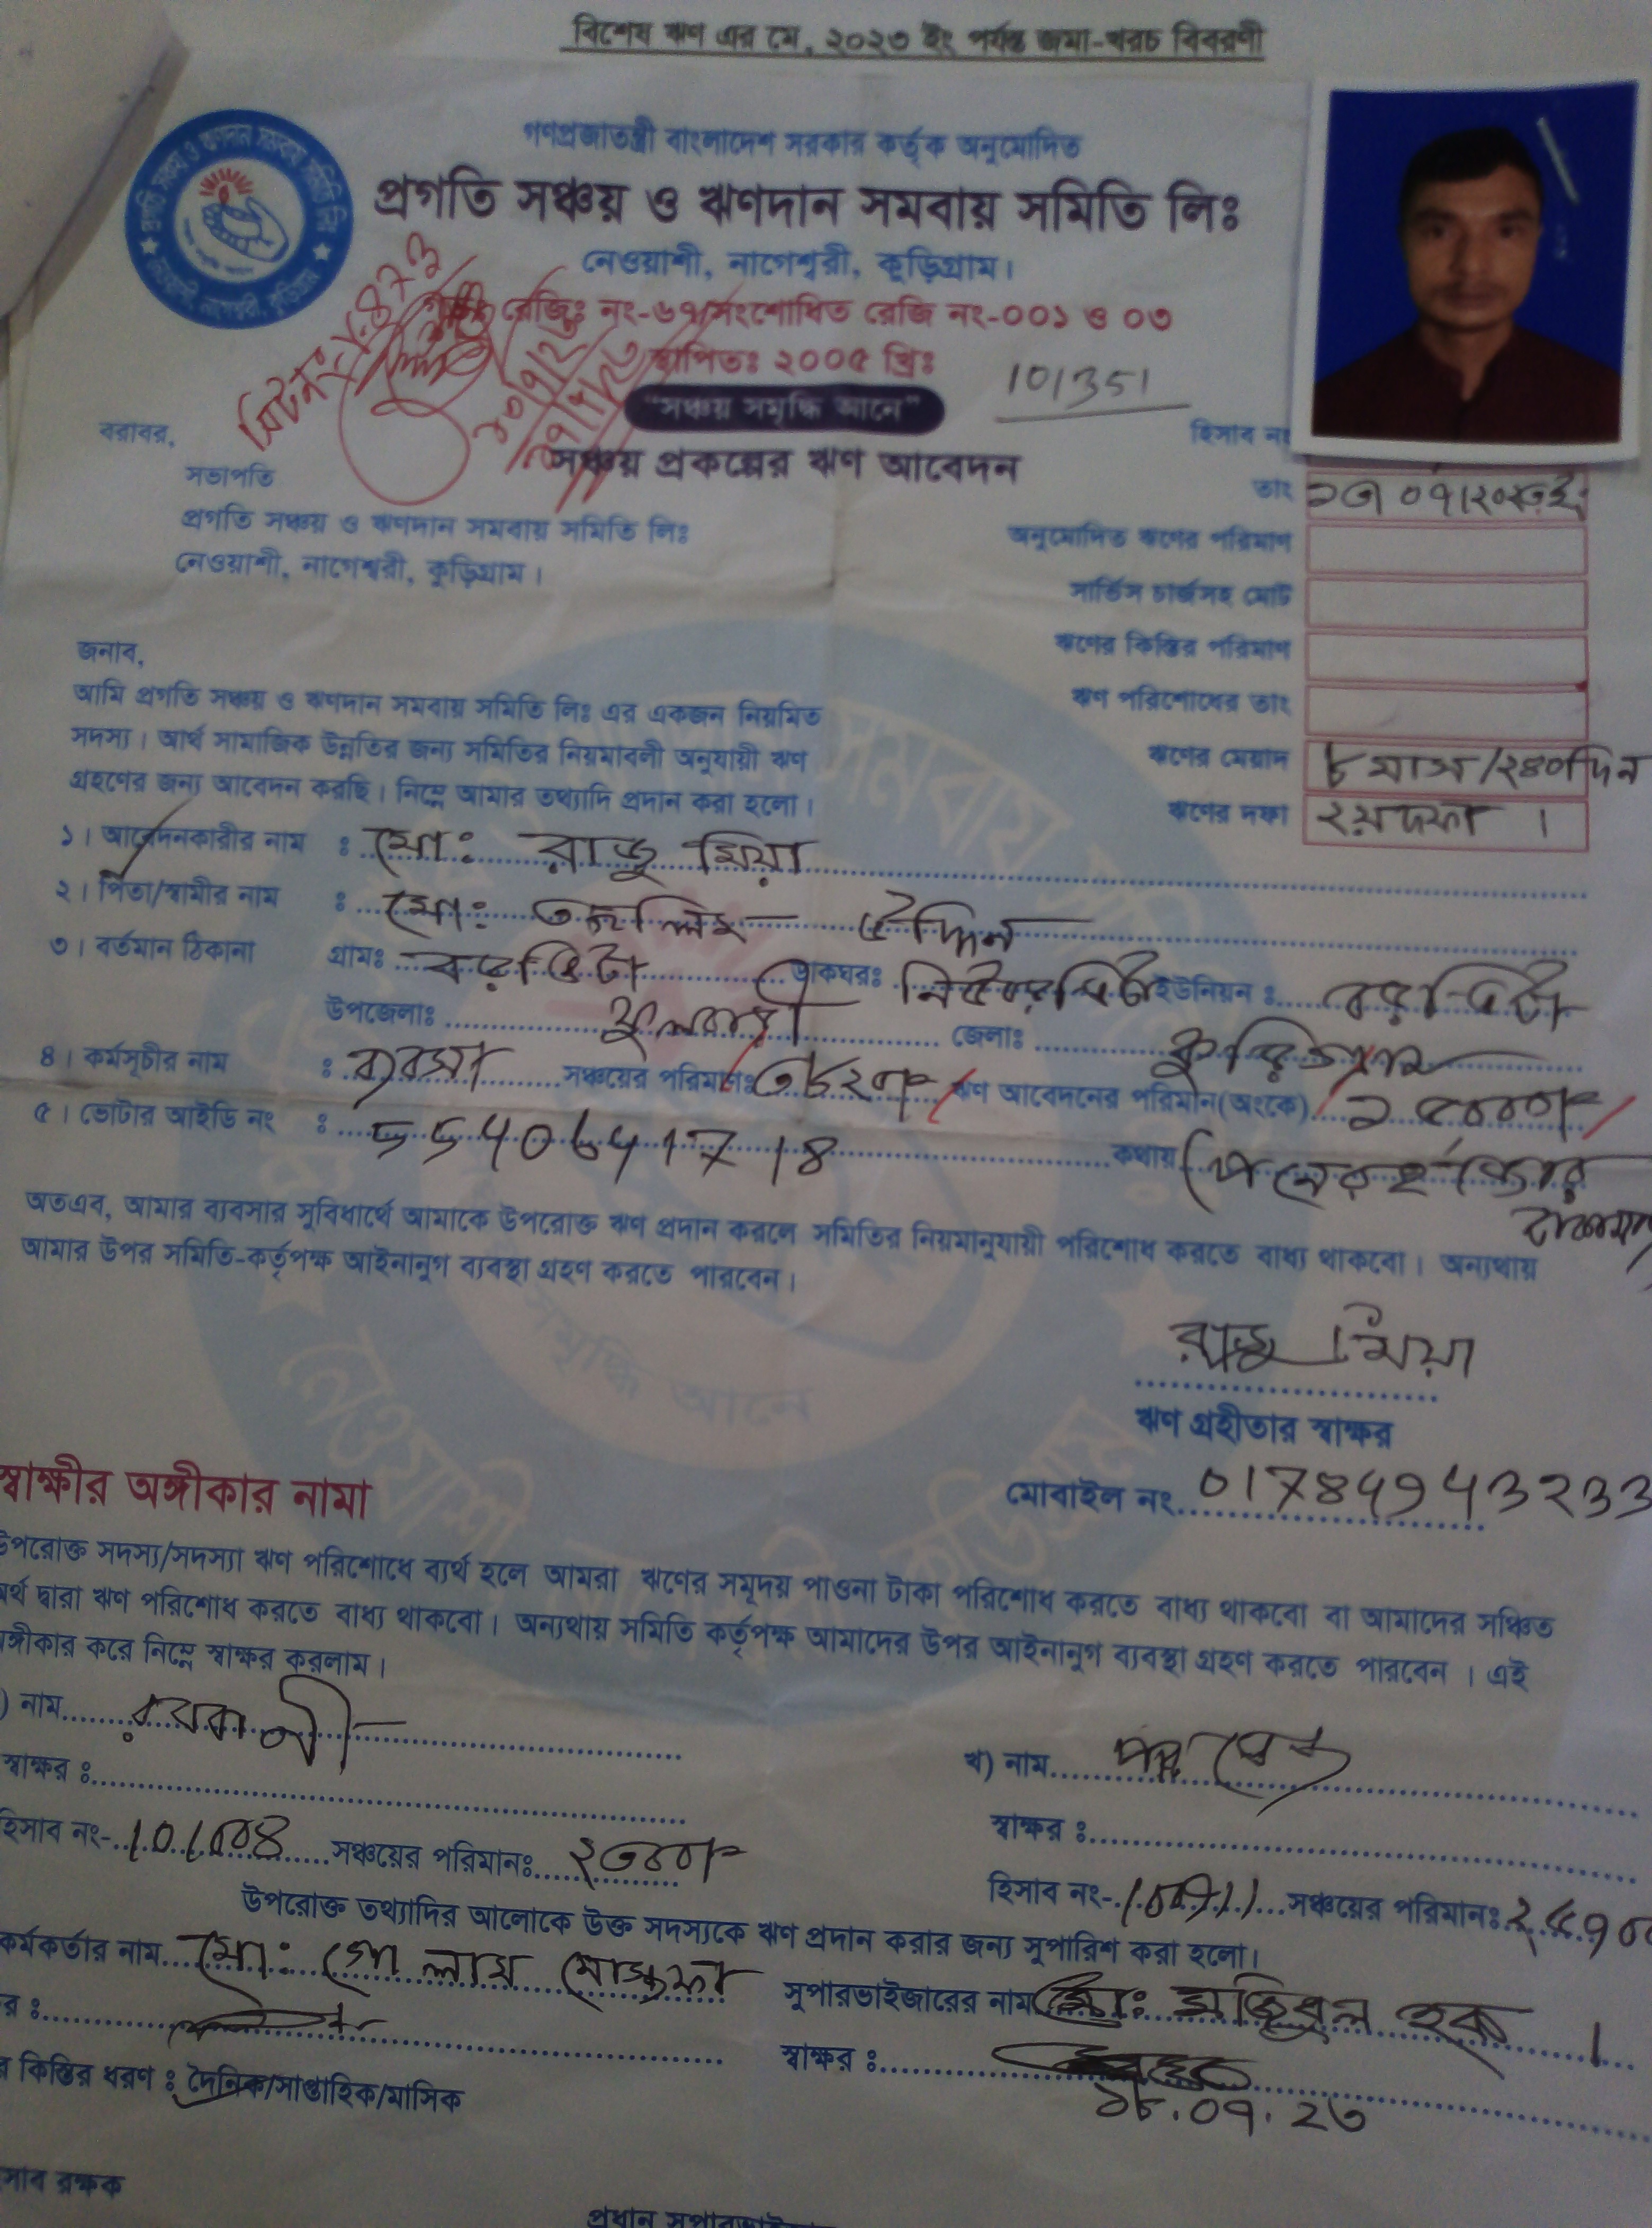 বিশেষ ঋণ এর মে, ২০২৩ ইং পর্যন্ত জমা-খরচ বিবরণী
গণপ্রজাতন্ত্রী বাংলাদেশ সরকার কর্তৃক অনুমোদিত
প্রগতি সঞ্চয় ও ঋণদান সমবায় সমিতি লিঃ
নেওয়াশী, নাগেশ্বরী, কুড়িগ্রাম।
রেজিঃ নং-৬৭/সংশোধিত রেজি নং-০০১ ও ০৩
স্থাপিতঃ ২০০৫ খ্রিঃ
"সঞ্চয় সমৃদ্ধি আনে"
101351
সঞ্চয় প্রকল্পের ঋণ আবেদন
হিসাব নং
বরাবর,
সভাপতি
প্রগতি সঞ্চয় ও ঋণদান সমবায় সমিতি লিঃ
নেওয়াশী, নাগেশ্বরী, কুড়িগ্রাম।
তাং
অনুমোদিত ঋণের পরিমাণ
সার্ভিস চার্জসহ মোট
ঋণের কিস্তির পরিমাণ
ঋণ পরিশোধের তাং
ঋণের মেয়াদ ৮ মাস/২৪০দিন
ঋণের দফা ২য় দফা।
জনাব,
আমি প্রগতি সঞ্চয় ও ঋণদান সমবায় সমিতি লিঃ এর একজন নিয়মিত
সদস্য। আর্থ সামাজিক উন্নতির জন্য সমিতির নিয়মাবলী অনুযায়ী ঋণ
গ্রহণের জন্য আবেদন করছি। নিম্নে আমার তথ্যাদি প্রদান করা হলো।
১। আবেদনকারীর নাম : মো: রাজু মিয়া
২। পিতা/স্বামীর নাম : মো:
৩। বর্তমান ঠিকানা গ্রামঃ বরভিটা ডাকঘরঃ ইউনিয়ন : বরভিটা
উপজেলাঃ ফুলবাড়ী জেলাঃ কুড়িগ্রাম
৪। কর্মসূচীর নাম : ব্যবসা সঞ্চয়ের পরিমাণঃ ৩৮২০/- ঋণ আবেদনের পরিমান(অংকে) ১৫০০০/-
৫। ভোটার আইডি নং : 5540641718 কথায় পনের হাজার টাকা মাত্র
অতএব, আমার ব্যবসার সুবিধার্থে আমাকে উপরোক্ত ঋণ প্রদান করলে সমিতির নিয়মানুযায়ী পরিশোধ করতে বাধ্য থাকবো। অন্যথায়
আমার উপর সমিতি-কর্তৃপক্ষ আইনানুগ ব্যবস্থা গ্রহণ করতে পারবেন।
রাজু মিয়া
ঋণ গ্রহীতার স্বাক্ষর
মোবাইল নং 01784943233
স্বাক্ষীর অঙ্গীকার নামা
উপরোক্ত সদস্য/সদস্যা ঋণ পরিশোধে ব্যর্থ হলে আমরা ঋণের সমূদয় পাওনা টাকা পরিশোধ করতে বাধ্য থাকবো বা আমাদের সঞ্চিত
অর্থ দ্বারা ঋণ পরিশোধ করতে বাধ্য থাকবো। অন্যথায় সমিতি কর্তৃপক্ষ আমাদের উপর আইনানুগ ব্যবস্থা গ্রহণ করতে পারবেন । এই
অঙ্গীকার করে নিম্নে স্বাক্ষর করলাম।
) নাম
খ) নাম
স্বাক্ষর :
স্বাক্ষর :
হিসাব নং- 101008 সঞ্চয়ের পরিমানঃ ২৩০০/-
হিসাব নং- সঞ্চয়ের পরিমানঃ
উপরোক্ত তথ্যাদির আলোকে উক্ত সদস্যকে ঋণ প্রদান করার জন্য সুপারিশ করা হলো।
কর্মকর্তার নাম মো: গোলাম মোস্তফা
সুপারভাইজারের নাম মো: হক।
র :
স্বাক্ষর :
১৮.০৭.২৩
র কিস্তির ধরণ : দৈনিক/সাপ্তাহিক/মাসিক
সাব রক্ষক